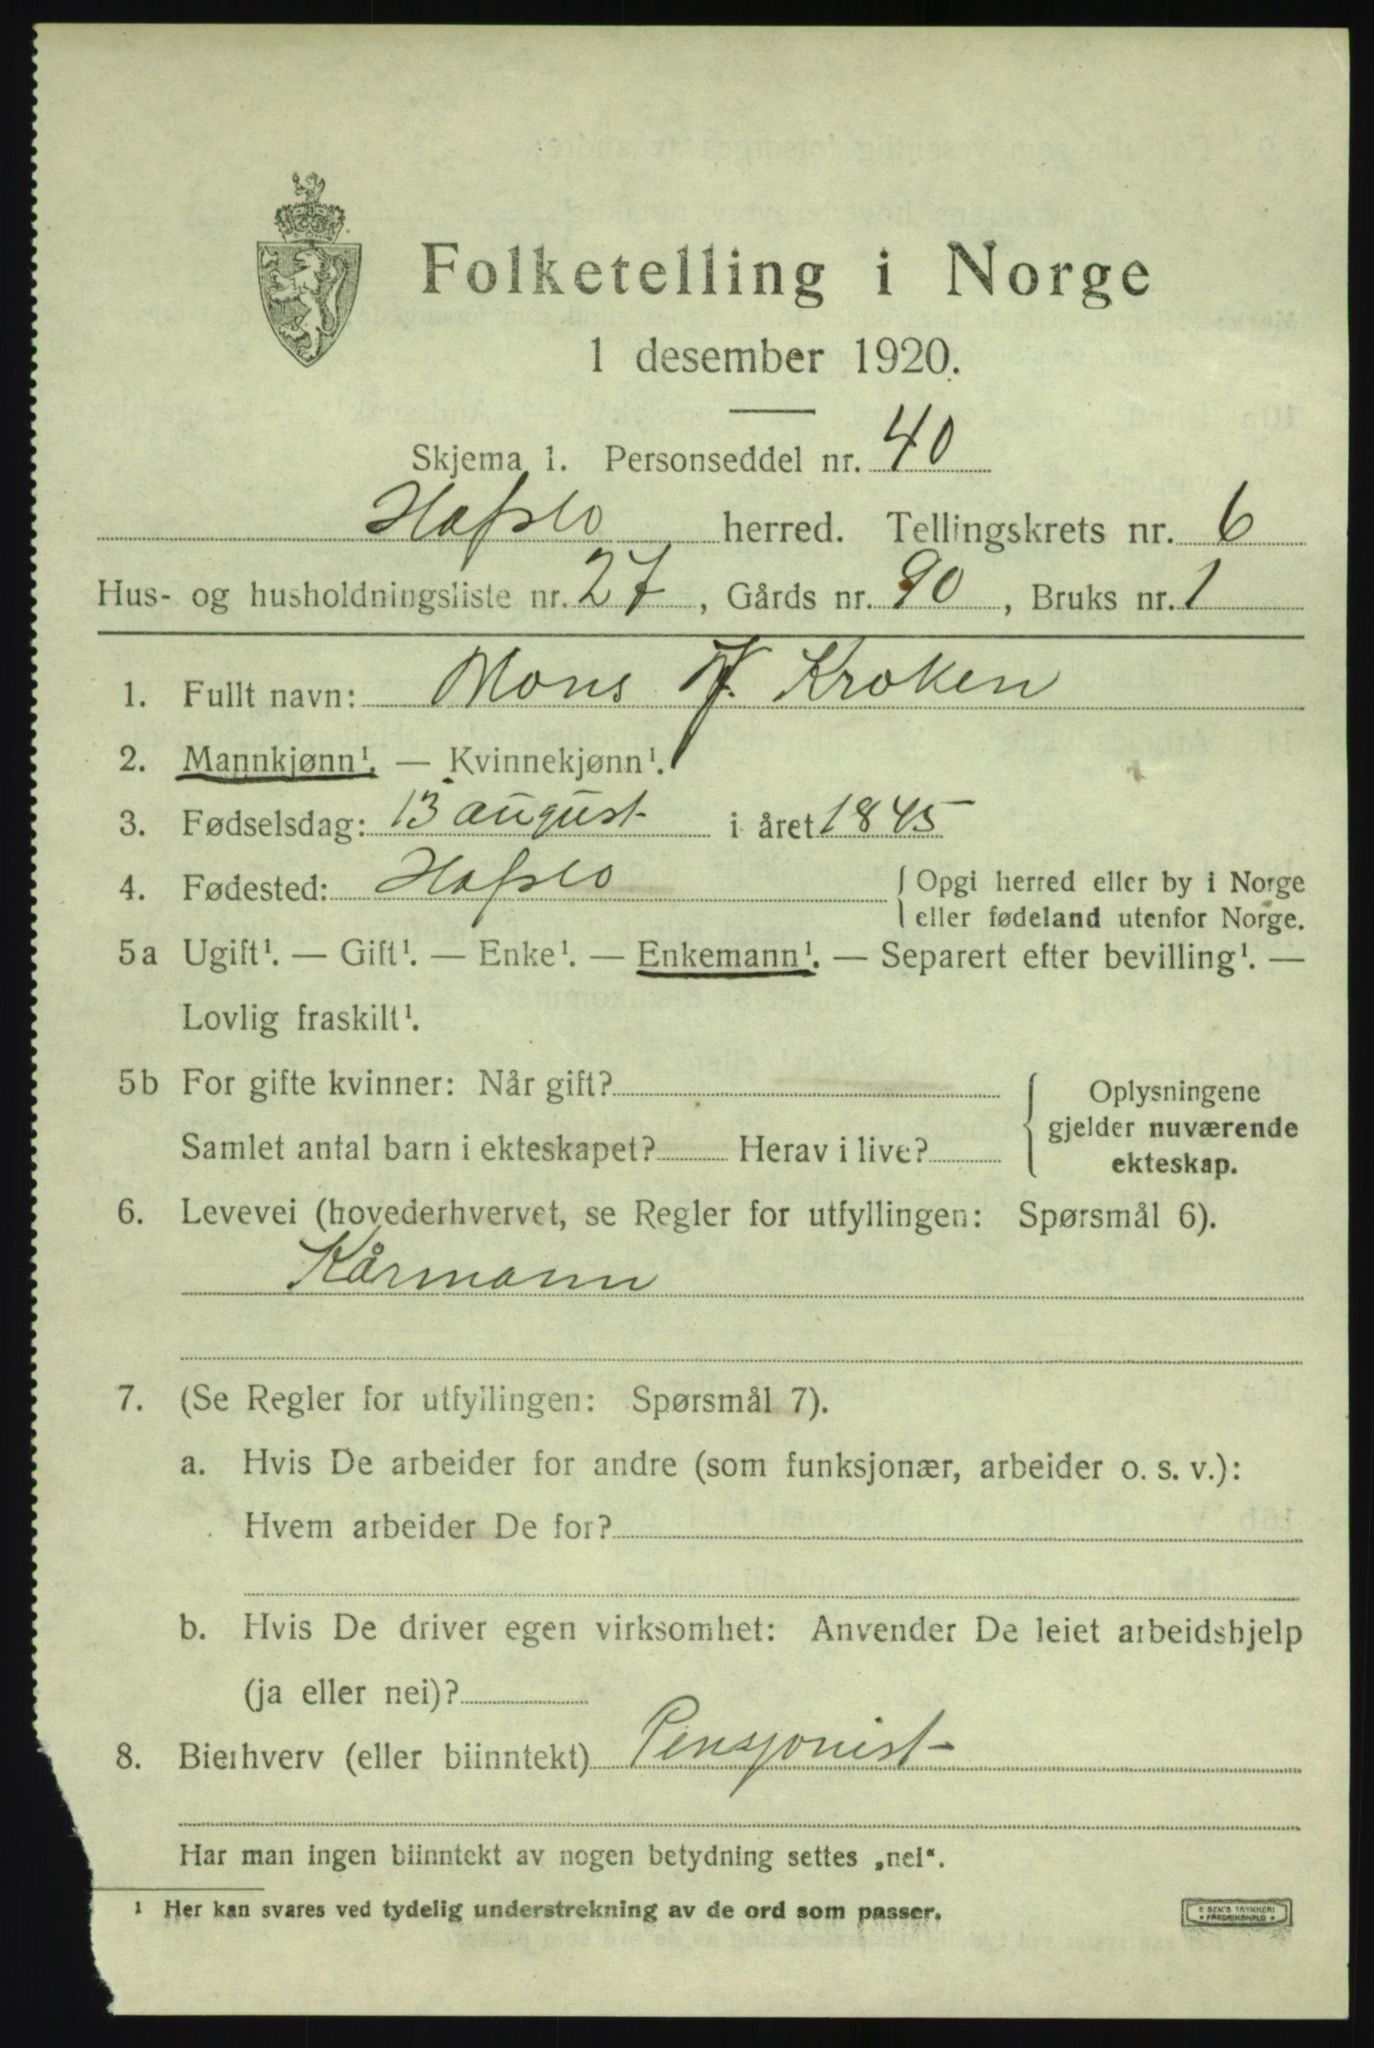 Folketelling i Norge
1 desember 1920.
Skjema 1. Personseddel nr. 40
Hafslo herred. Tellingskrets nr. 6
Hus- og husholdningsliste nr. 27, Gårds nr. 90, Bruks nr. 1
1. Fullt navn: Mons Kroken
2. Mannkjønn¹. — Kvinnekjønn¹.
3. Fødselsdag: 13 august i året 1845
4. Fødested: Hafslo { Opgi herred eller by i Norge
eller fødeland utenfor Norge.
5a Ugift¹. — Gift¹. — Enke¹. — Enkemann¹. — Separert efter bevilling¹. —
Lovlig fraskilt¹.
5b For gifte kvinner: Når gift? { Oplysningene
gjelder nuværende
Samlet antal barn i ekteskapet? Herav i live?
ekteskap.
6. Levevei (hovederhvervet, se Regler for utfyllingen: Spørsmål 6).
Kårmann
7. (Se Regler for utfyllingen: Spørsmål 7).
a. Hvis De arbeider for andre (som funksjonær, arbeider o. s. v.):
Hvem arbeider De for?
b. Hvis De driver egen virksomhet: Anvender De leiet arbeidshjelp
(ja eller nei)?
8. Bierhverv (eller biinntekt) Pensjonist
Har man ingen biinntekt av nogen betydning settes „nei“.
¹ Her kan svares ved tydelig understrekning av de ord som passer.